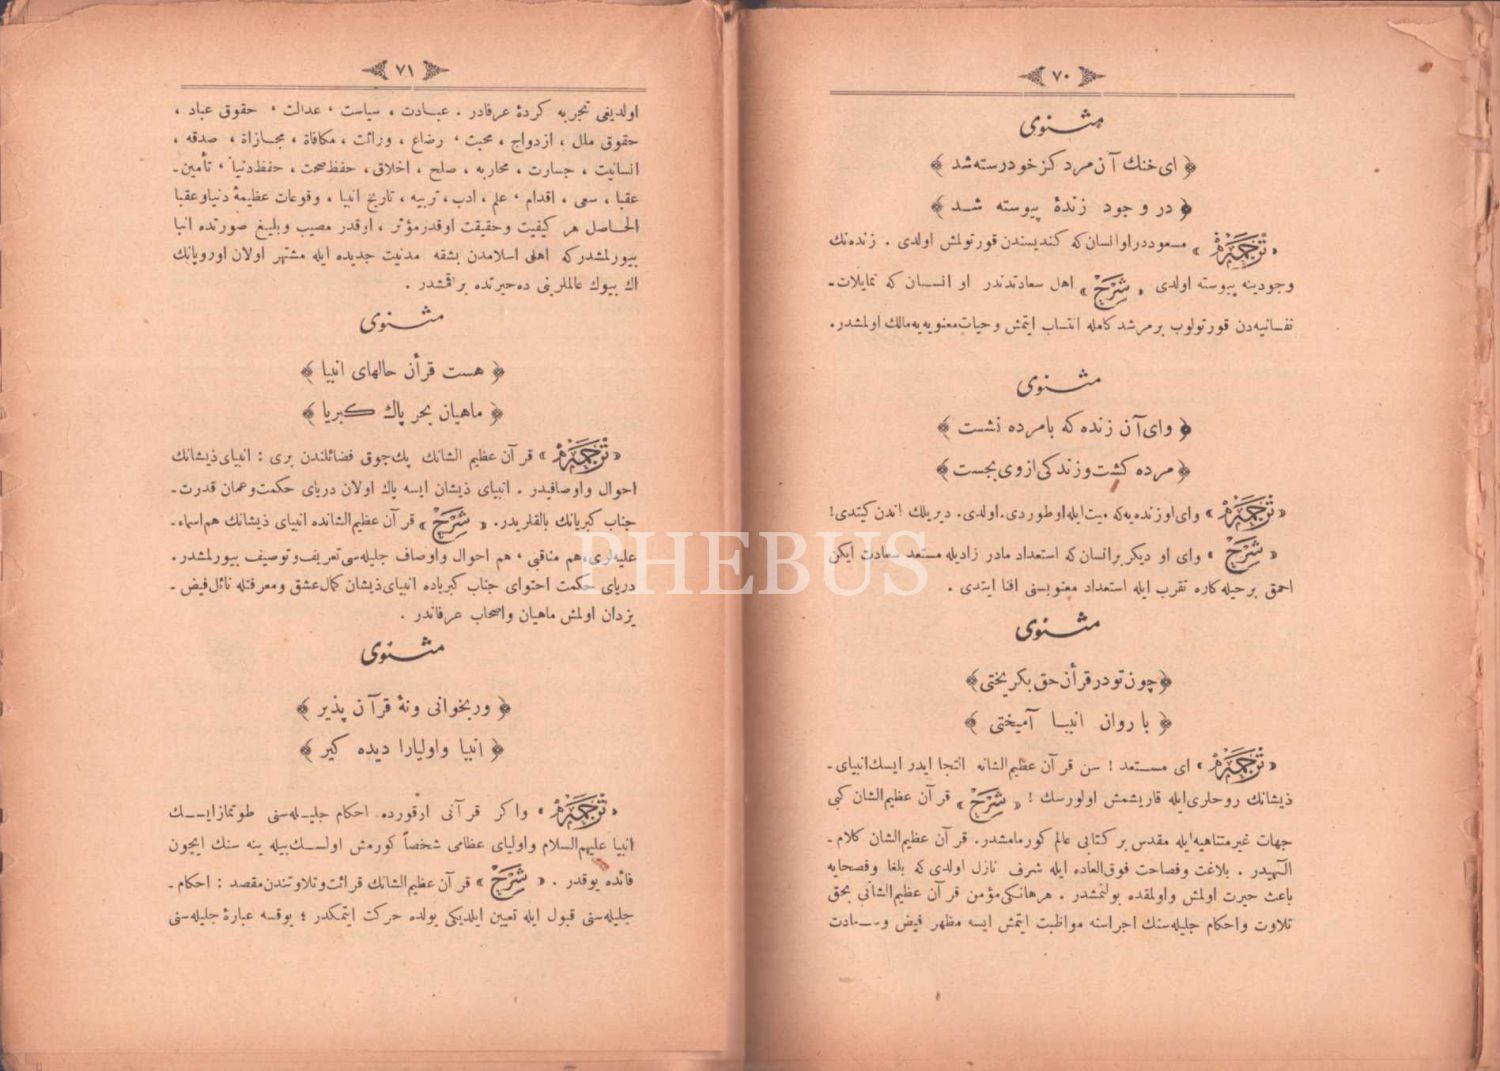 ٧٠
مثنوی
﴿ ای خنك آن مرد كز خود رسته شد ﴾
﴿ در وجود زندهٔ پیوسته شد ﴾
« ترجمه » مسعوددر او انسان كه كندیسندن قورتولمش اولدی . زنده‌نك
وجودینه پیوسته اولدی « شرح » اهل سعادتدندر او انسان كه تمایلات ـ
نفسانیه‌دن قورتولوب بر مرشد كامله انتساب ایتمش و حیات معنویه‌یه مالك اولمشدر .
مثنوی
﴿ وای آن زنده كه با مرده نشست ﴾
﴿ مرده كشت و زندكی از وی بجست ﴾
« ترجمه » وای او زنده‌یه كه میت ایله اوطوردی . اولدی . دیریلك اندن كیتدی !
« شرح » وای او دیكر بر انسان كه استعداد مادر زادیله مستعد سعادت ایكن
احمق بر حیله كاره تقرب ایله استعداد معنویسنی افنا ایتدی .
مثنوی
﴿ چون تو در قرآن حق بكریختی ﴾
﴿ با روان انبیا آمیختی ﴾
« ترجمه » ای مستعد ! سن قرآن عظیم‌الشانه التجا ایدر ایسك انبیای ـ
ذیشانك روحلری ایله قاریشمش اولورسك ! « شرح » قرآن عظیم‌الشان كبی
جهات غیر متناهیه ایله مقدس بر كتابی عالم كورمامشدر . قرآن عظیم‌الشان كلام ـ
الٓهیدر . بلاغت و فصاحت فوق‌العاده ایله شرف نازل اولدی كه بلغا و فصحایه
باعث حیرت اولمش و اولمقده بولنمشدر . هر هانكی مؤمن قرآن عظیم‌الشانی بحق
تلاوت و احكام جلیله‌سنك اجراسنه مواظبت ایتمش ایسه مظهر فیض و سعادت
٧١
اولدیغی تجربه كردهٔ عرفادر . عبادت ، سیاست ، عدالت ، حقوق عباد ،
حقوق ملل ، ازدواج ، محبت ، رضاع ، وراثت ، مكافاة ، مجازاة ، صدقه ،
انسانیت ، جسارت ، محاربه ، صلح ، اخلاق ، حفظ صحت ، حفظ دنیا ، تأمین ـ
عقبا ، سعی ، اقدام ، علم ، ادب ، تربیه ، تاریخ انبیا ، وقوعات عظیمهٔ دنیا و عقبا
الحاصل هر كیفیت و حقیقت اوقدر مؤثر ، اوقدر مصیب و بلیغ صورتده انبا
بیورلمشدر كه اهلی اسلامدن بشقه مدنیت جدیده ایله مشتهر اولان اوروپانك
اك بیوك عالملرینی ده حیرتده براقمشدر .
مثنوی
﴿ هست قرآن حالهای انبیا ﴾
﴿ ماهیان بحر پاك كبریا ﴾
« ترجمه » قرآن عظیم الشانك پك چوق فضائلندن بری : انبیای ذیشانك
احوال و اوصافیدر . انبیای ذیشان ایسه پاك اولان دریای حكمت و عمان قدرت ـ
جناب كبریانك بالقلریدر . « شرح » قرآن عظیم‌الشانده انبیای ذیشانك هم اسماء ـ
علیه‌لری ، هم مناقبی ، هم احوال و اوصاف جلیله‌سی تعریف و توصیف بیورلمشدر .
دریای حكمت احتوای جناب كبریاده انبیای ذیشان كمال عشق و معرفتله نائل فیض ـ
یزدان اولمش ماهیان و اصحاب عرفاندر .
مثنوی
﴿ ور بخوانی و نهٔ قرآن پذیر ﴾
﴿ انبیا و اولیارا دیده كیر ﴾
« ترجمه » و اكر قرآنی اوقورده احكام جلیله‌سنی طوتماز ایسك
انبیا علیهم‌السلام و اولیای عظامی شخصاً كورمش اولسك بیله ینه سنك ایچون
فائده یوقدر . « شرح » قرآن عظیم‌الشانك قرائت و تلاوتندن مقصد : احكام ـ
جلیله‌سنی قبول ایله تعیین ایلدیكی یولده حركت ایتمكدر ؛ یوقسه عبارهٔ جلیله‌سنی
PHEBUS